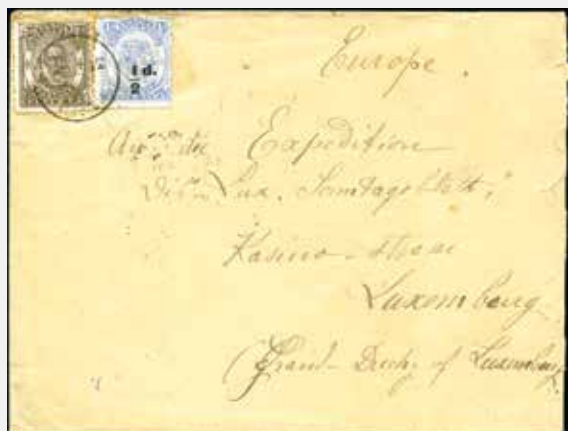 ½d.
Europe.
An die Expedition
Lux. Sonntagsblatt,"
Kasino-strasse
Luxemburg
(Grand-Duchy of Luxemburg